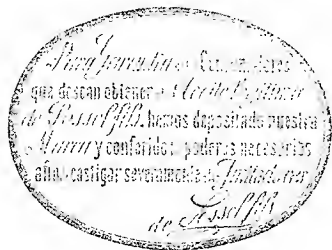 Para Garantia de Consumidores
que desean obtener el Aceite
de Possel fils, hemos depositado nuestra
Marca y conferidos poderes necesarios
afin castigar severamente
de Possel fils